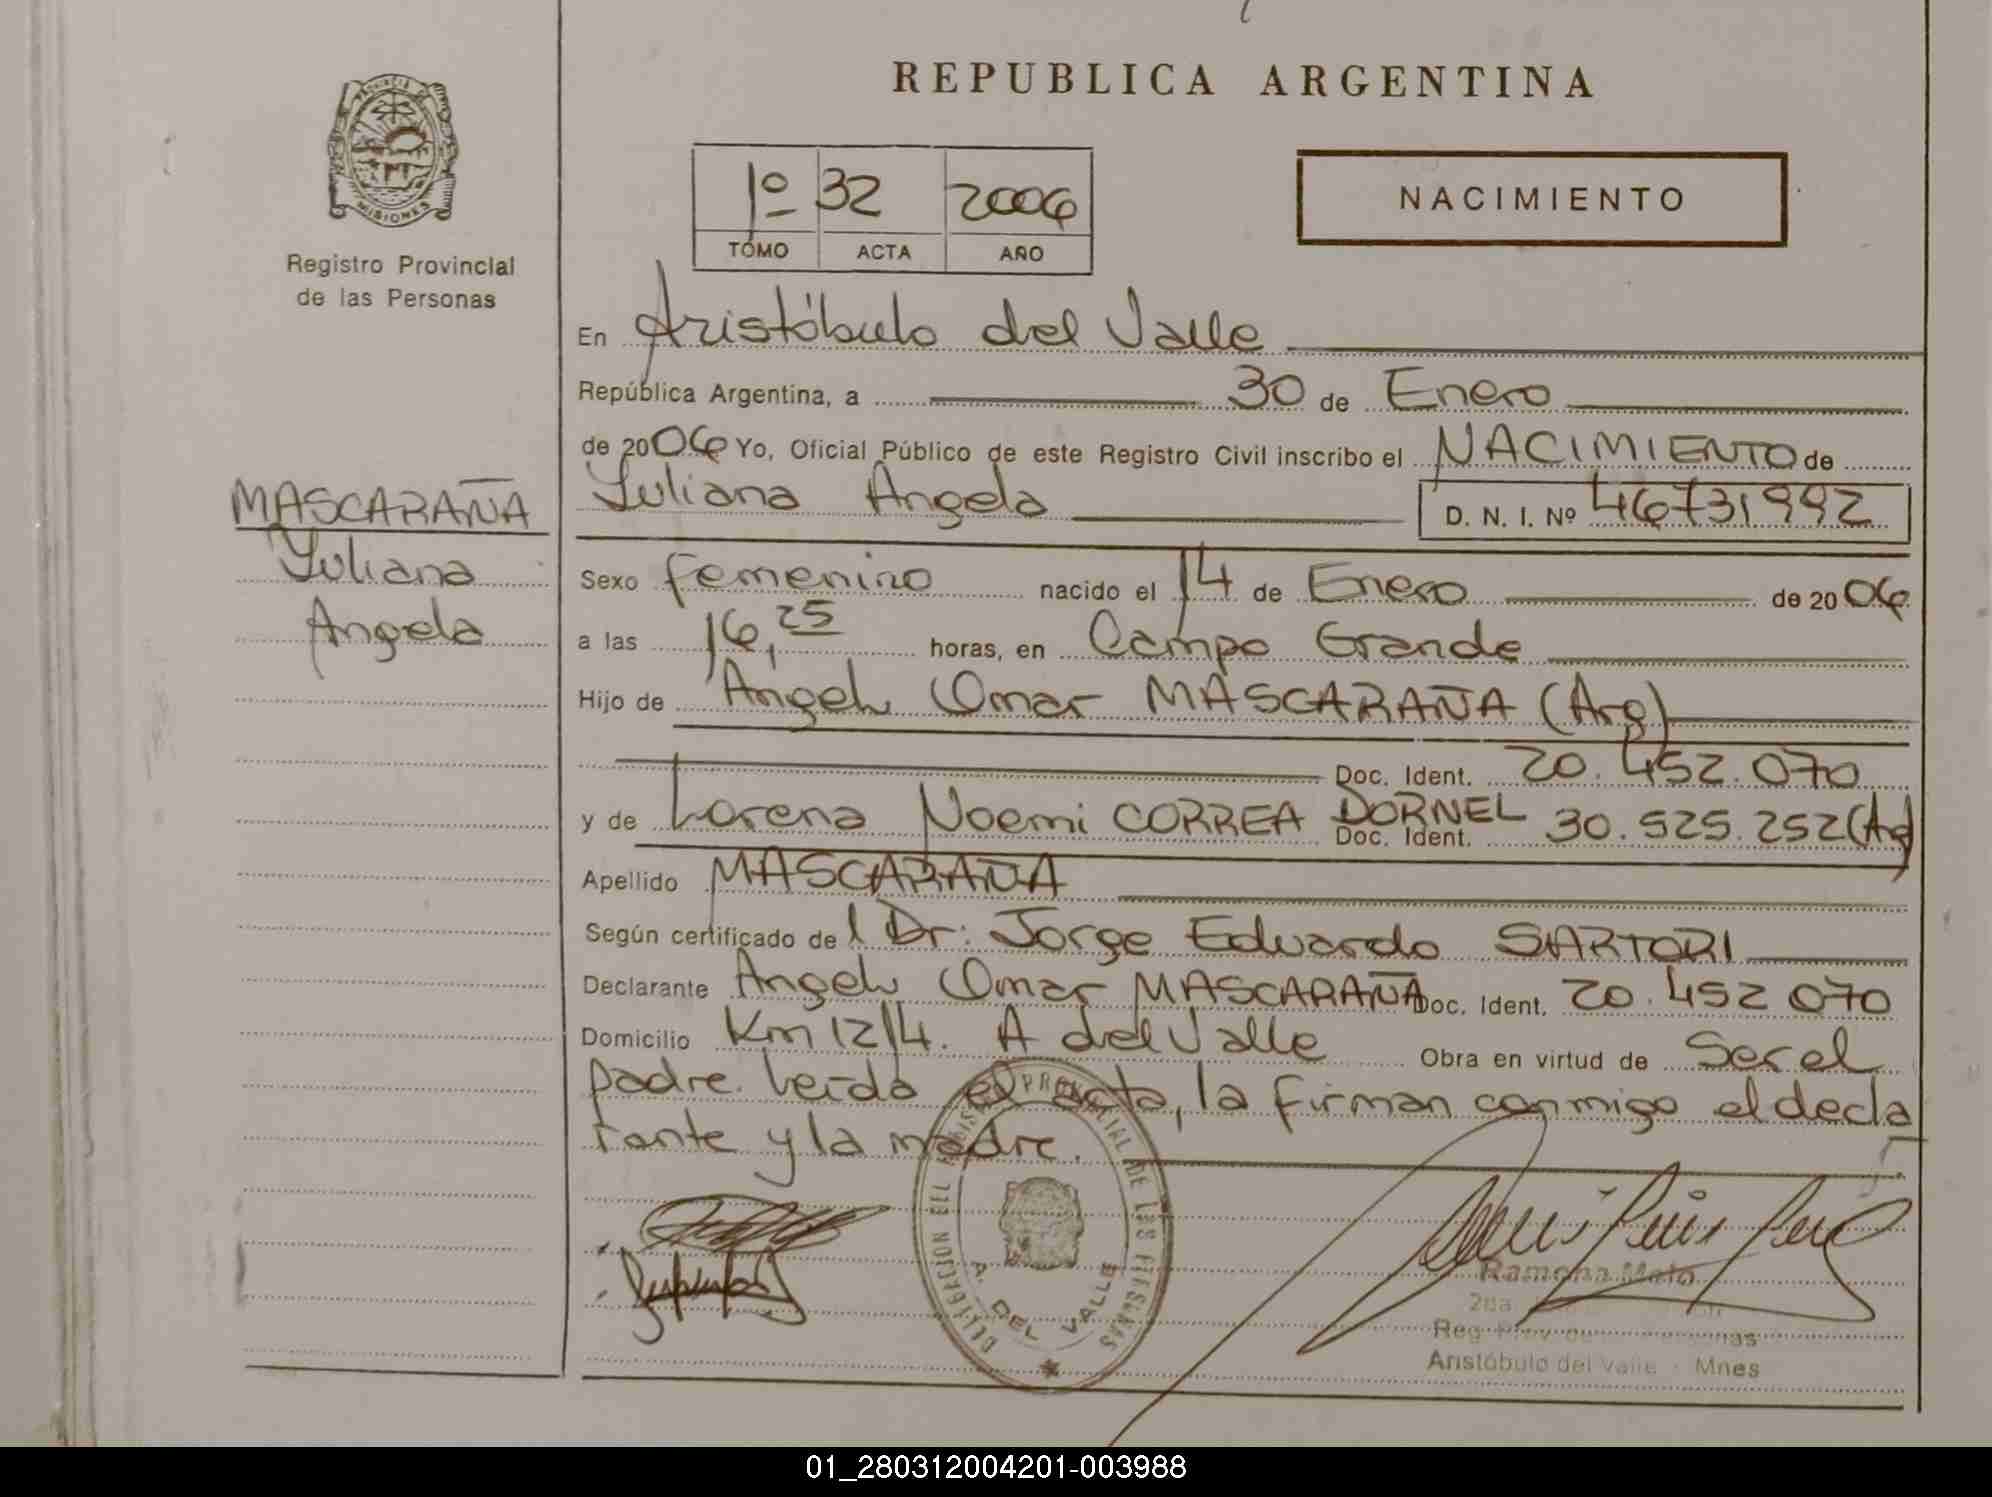 REPUBLICA ARGENTINA
PROVINCIA DE MISIONES
Registro Provincial
de las Personas
1º 32 2006
TOMO ACTA AÑO
NACIMIENTO
En Aristóbulo del Valle
República Argentina, a 30 de Enero
de 2006 Yo, Oficial Público de este Registro Civil inscribo el NACIMIENTO de
MASCARAÑA
Yuliana
Angela
Yuliana Angela D. N. I. Nº 46731992
Sexo femenino nacido el 14 de Enero de 2006
a las 16,25 horas, en Campo Grande
Hijo de Angel Omar MASCARAÑA (Arg)
Doc. Ident. 20.452.070
y de Lorena Noemi CORREA DORNEL Doc. Ident. 30.525.252 (Arg)
Apellido MASCARAÑA
Según certificado de l Dr: Jorge Eduardo SARTORI
Declarante Angel Omar MASCARAÑA Doc. Ident. 20.452 070
Domicilio Km 1214. A del Valle Obra en virtud de Ser el
padre. Leída el acta, la firman conmigo el decla
rante y la madre.
DELEGACION DEL REGISTRO PROVINCIAL DE LAS PERSONAS
A. DEL VALLE
Ramona Melo
2da
Reg. Prov. de
Aristóbulo del Valle - Mnes
01_280312004201-003988